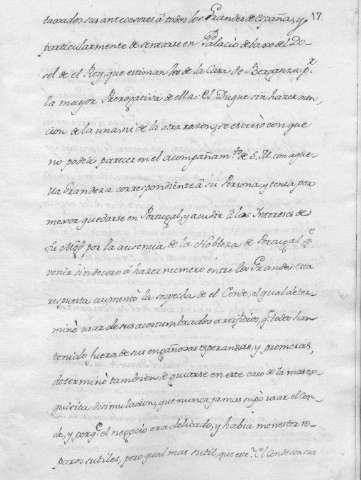 tarados sus antecesores á todos los Grandes de España, y 17
particularmente de sentarse en Palacio debaxo del Do-
sel de el Rey, que estiman los de la Casa de Berganza pr.
la mayor Prerogativa de ella: El Duque sin hazer men-
cion de la una ni de la otra razon, se escusò con que
no podia parecer en el acompañamto. de S. M. con aque-
lla Grandeza correspondiente à su Persona, y tenia por
menor quedarse en Portugal, y acudir à los Intereses de
su Magd. por la ausencia de la Nobleza de Portugal, q.
venir sin decoro à hazer numero entre los Grandes: esta
respuesta aumentò la sospecha de el Conde, el qual deter-
minò usar de sus acostumbrados artificios, q. todos han
tenido fuera de sus engañosas esperanzas, y promesas,
determinò tambien de guiarse en este caso de la mas ex-
quisita disimulacion, que nunca jamas supo usar el Con-
de, y porq. el negocio era delicado, y habia menester re-
paros sutiles, pero qual mas sutil, que este: El Conde con su